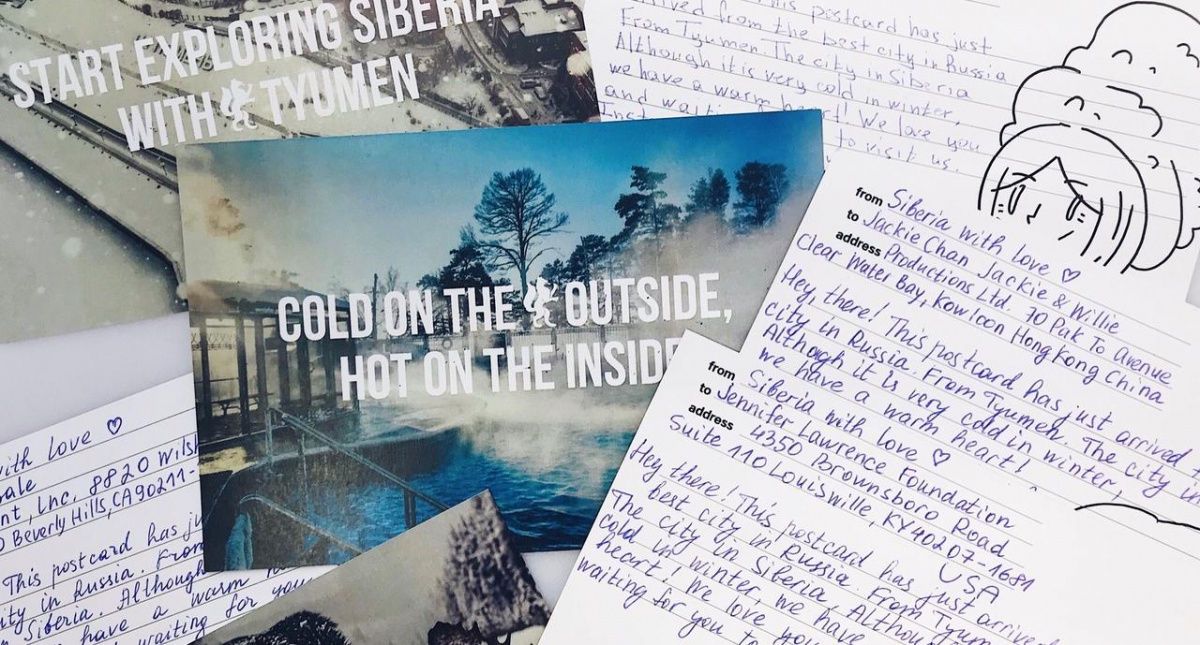 START EXPLORING SIBERIA
WITH TYUMEN
COLD ON THE OUTSIDE,
HOT ON THE INSIDE
This postcard has just
from the best city in Russia
From Tyumen. The city in Siberia
Although it is very cold in winter,
we have a warm heart! We love you
and
to visit us.
from Siberia with love ♡
to Jackie Chan Jackie & Willie
address Productions Ltd. 70 Pak To Avenue
Clear Water Bay, Kowloon HongKong China
Hey, there! This postcard has just arrived
city in Russia. From Tyumen. The city in
Although it is very cold in winter,
we have a warm heart!
from Siberia with love ♡
to Jennifer Lawrence Foundation
address 4350 Brownsboro Road
Suite 110 Louiswille, KY40207-1681
USA
Hey there! This postcard has just arrived
best city in Russia. From Tyum
The city in Siberia. Althou
cold in winter, we have
heart! We love you
waiting for you to
with love ♡
Inc. 8820 Wils
Beverly Hills, CA90211-
This postcard has ju
in Russia. From
Siberia. Although
have a warm
waiting for you